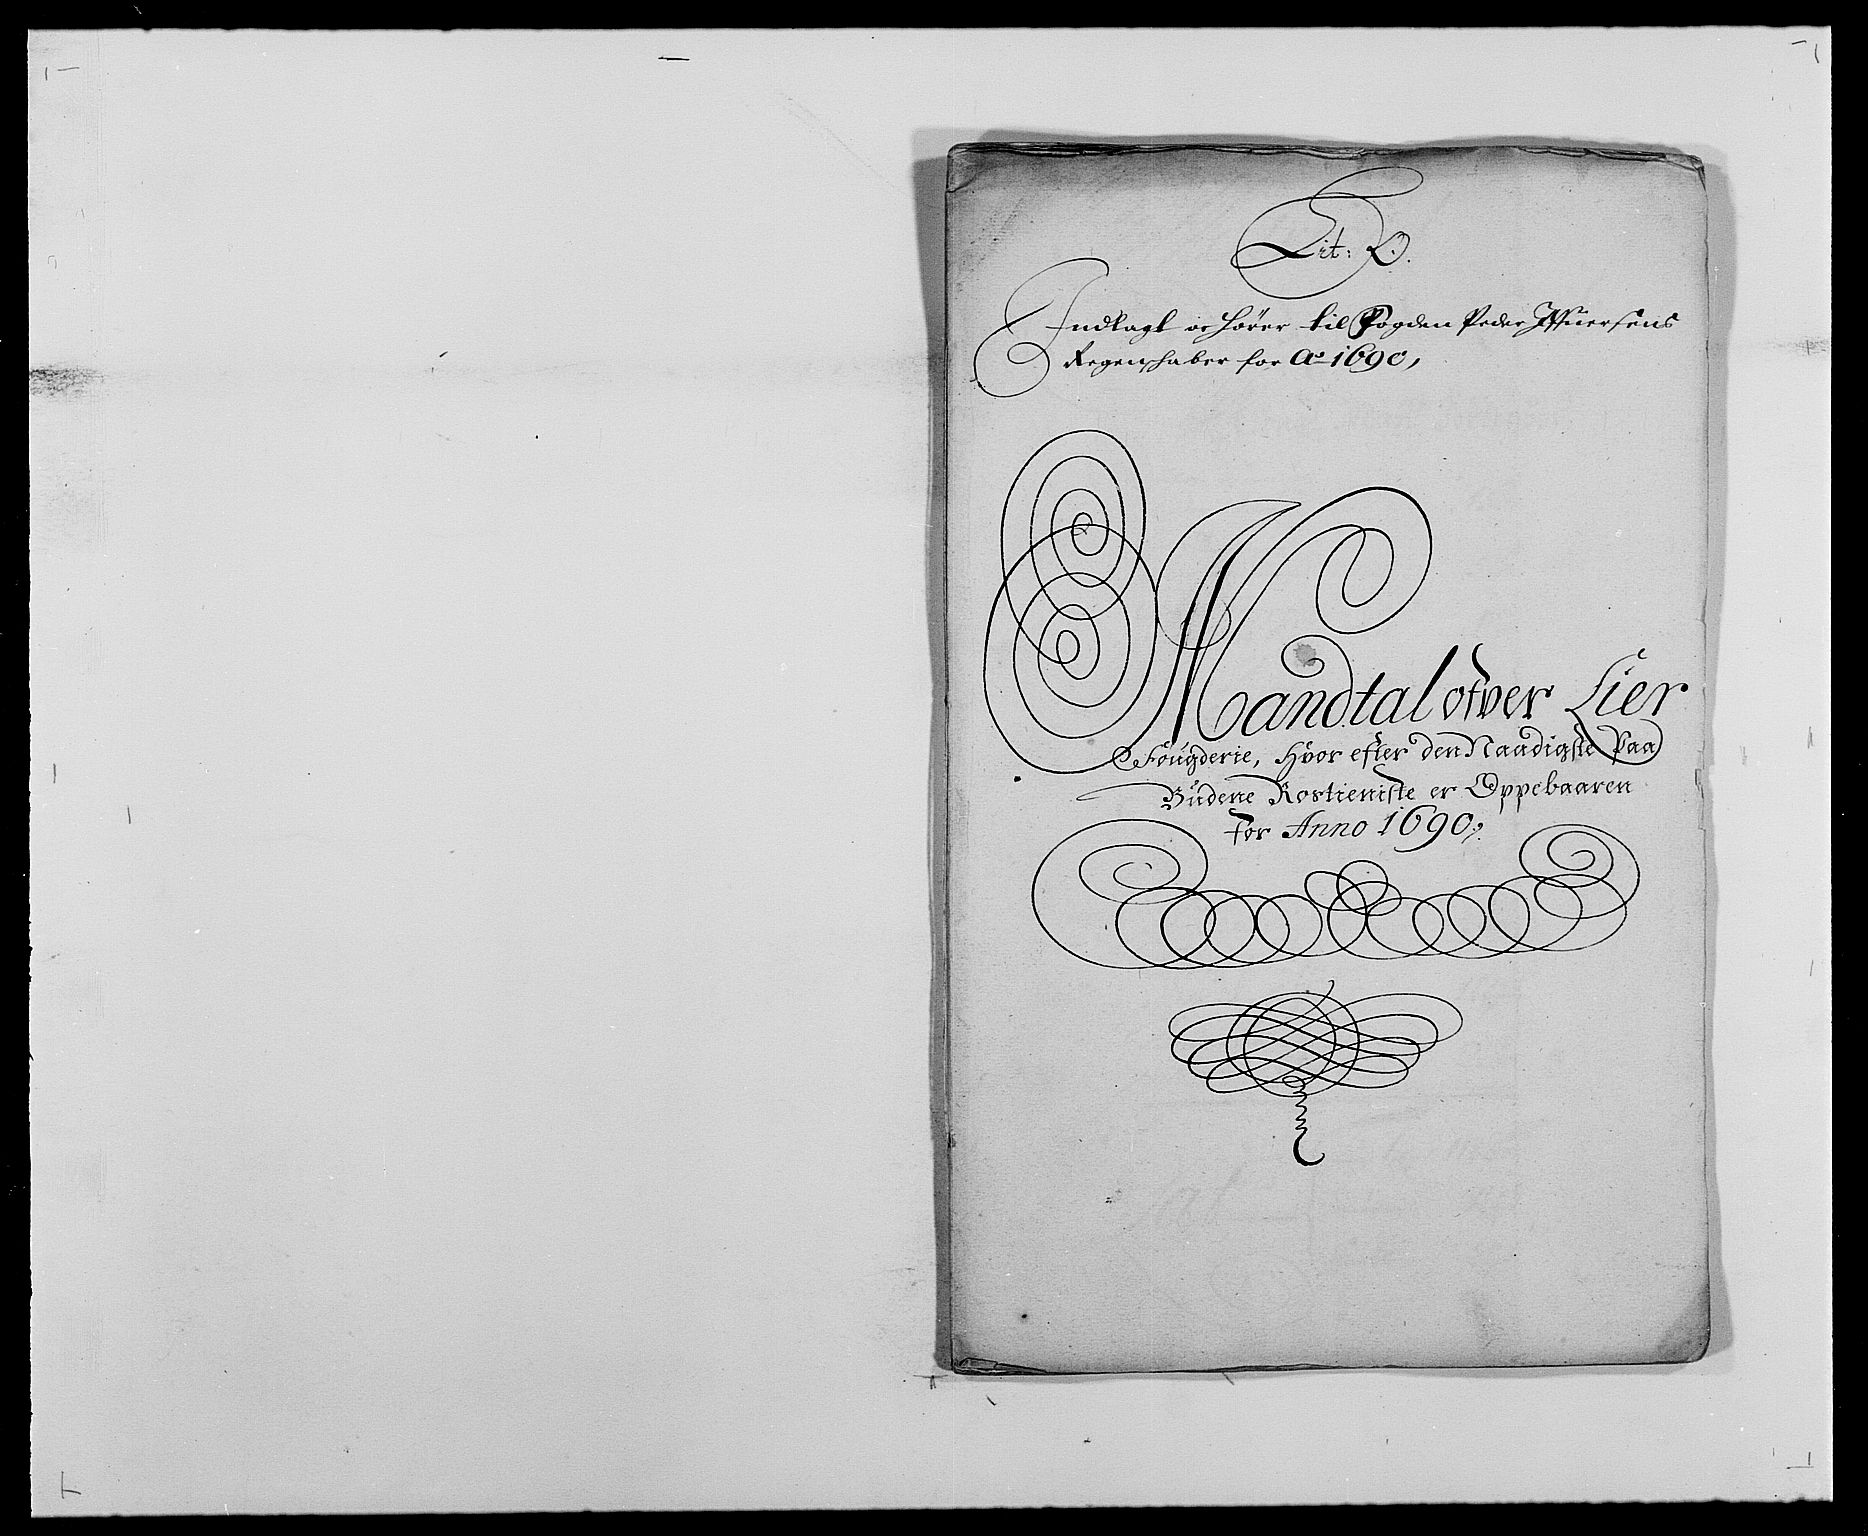 Lit: O.
Indlagt oc hörer til Fogden Peder Iffuersens
Regenschaber for Ao 1690,
Mandtal ofver Lier
Fougderie, Hvor efter den Naadigste Paa
Büdene Rostieniste er Oppebaaren
for Anno 1690,